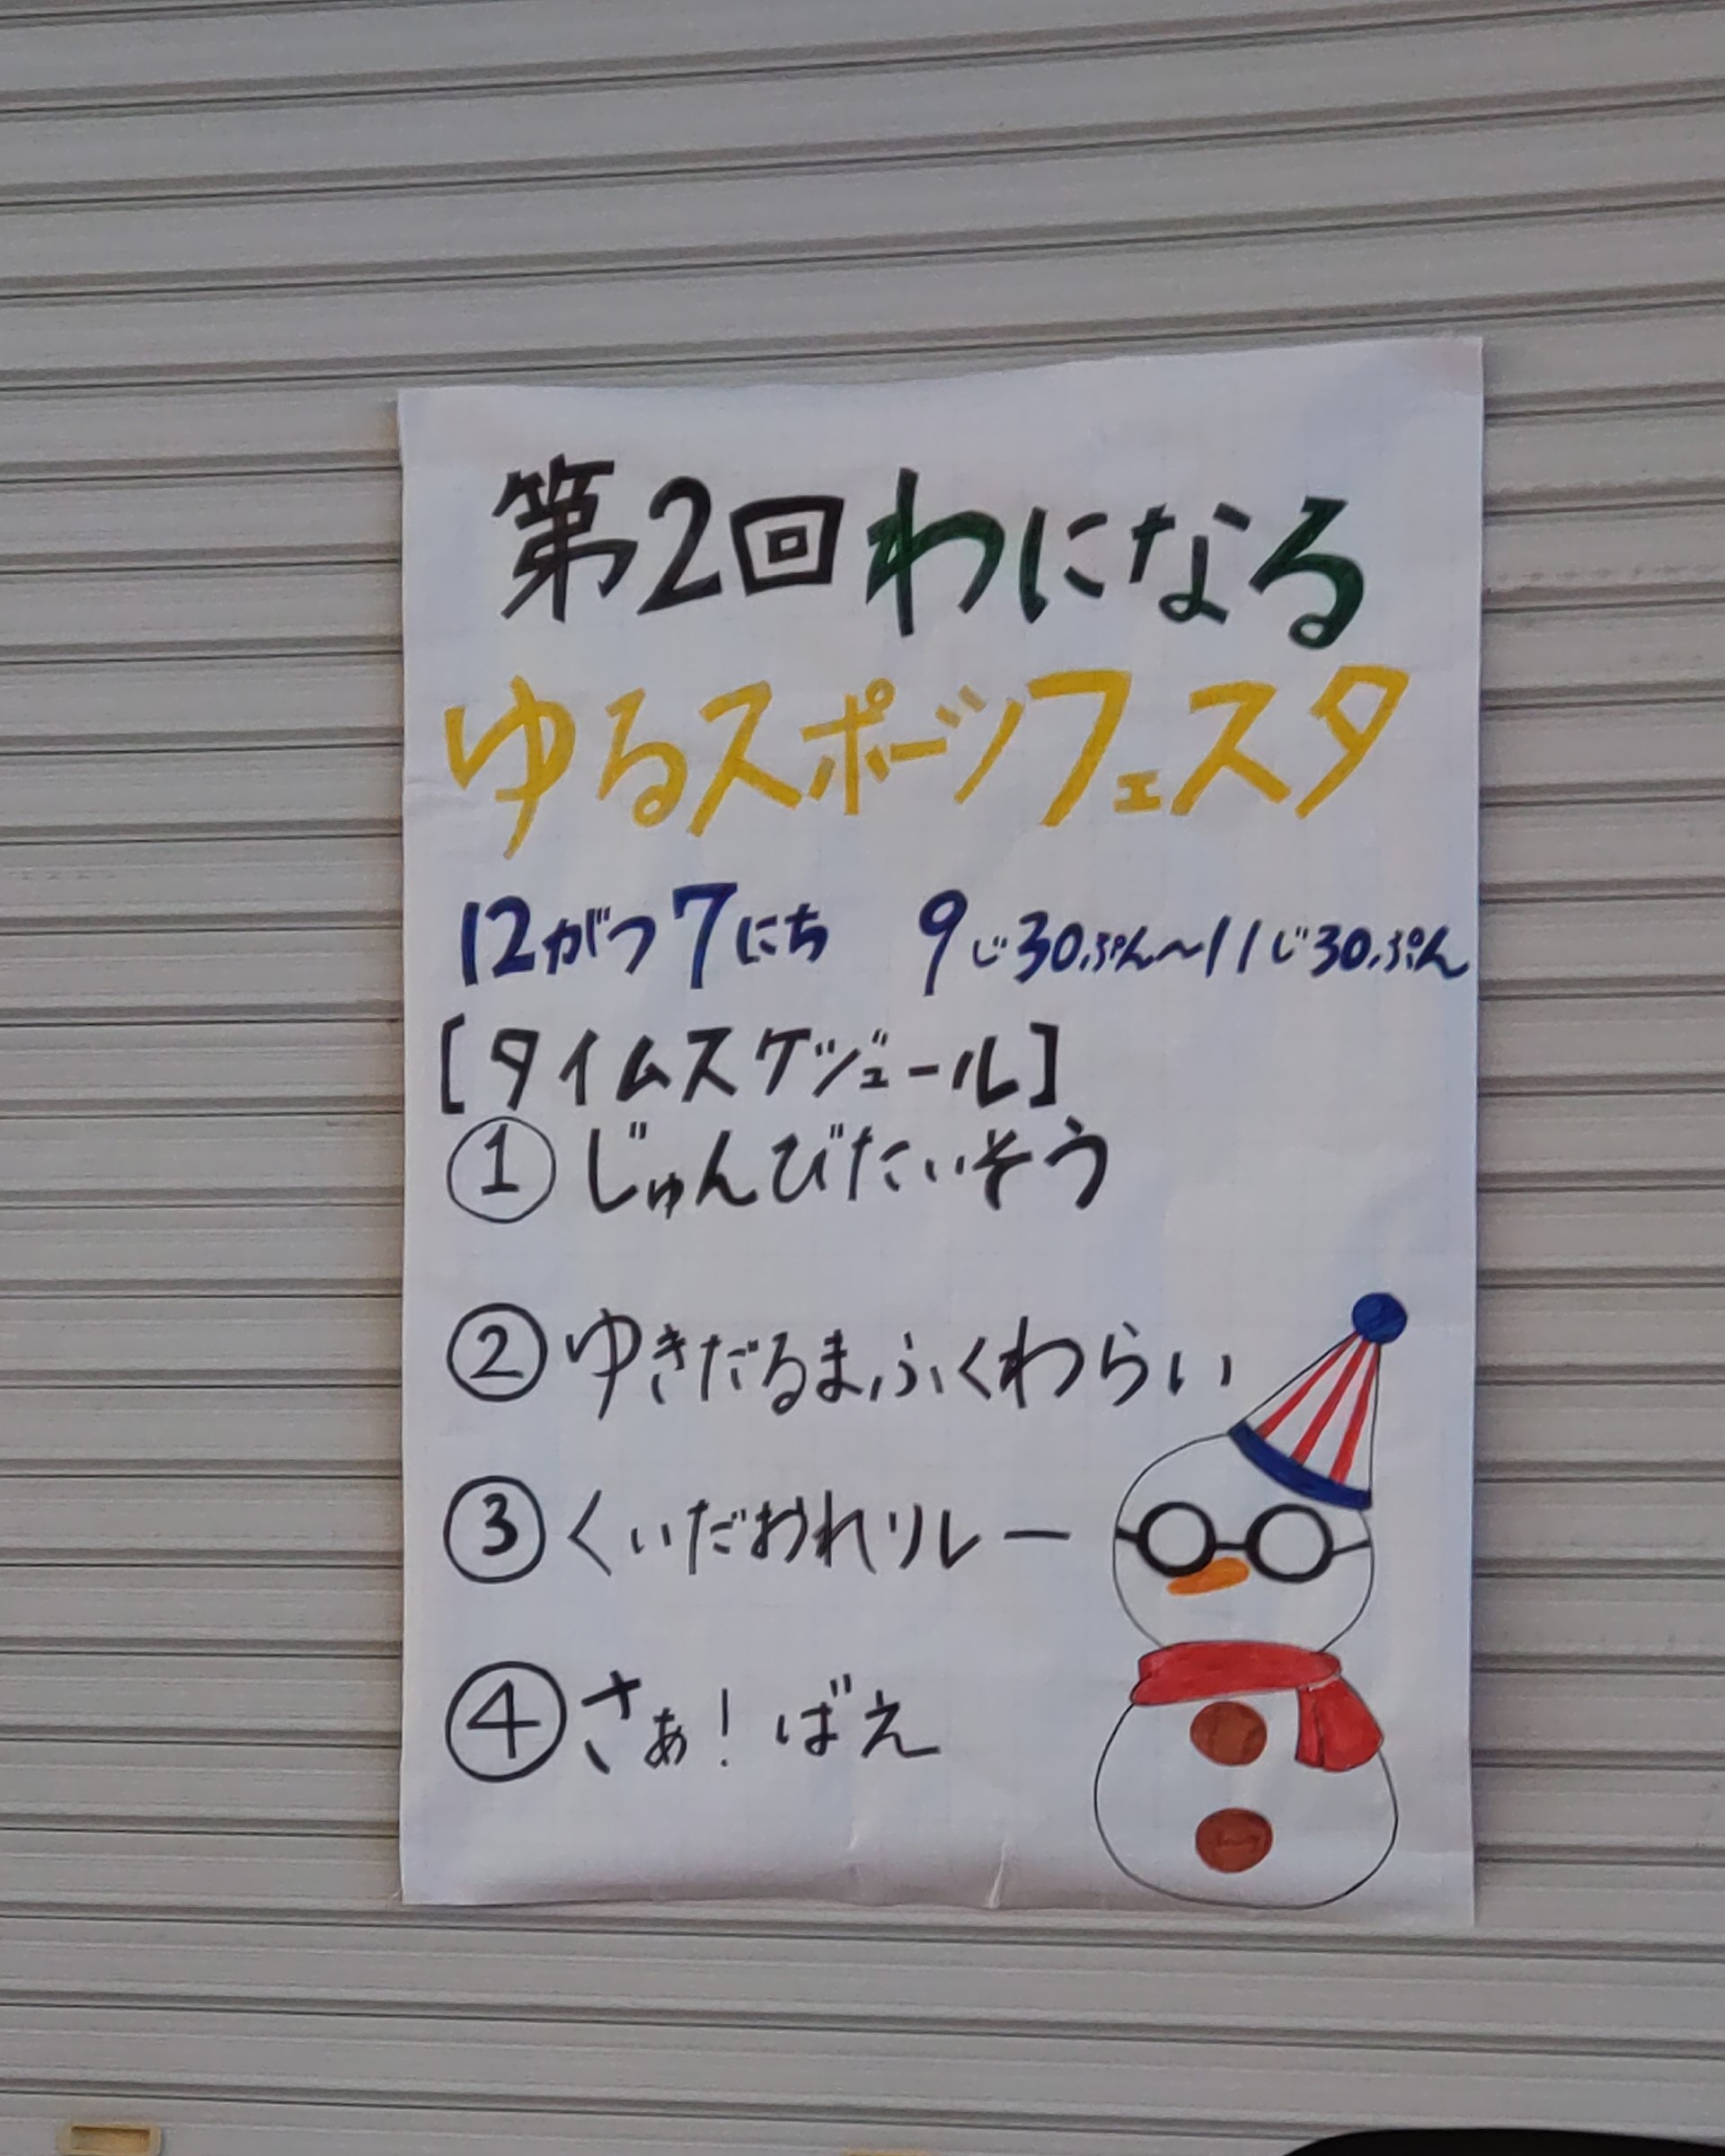 第2回わになる
ゆるスポーツフェスタ
12がつ7にち 9じ30ぷん～11じ30ぷん
[タイムスケジュール]
① じゅんびたいそう
② ゆきだるまふくわらい
③ くいだおれリレー
④ さぁ！ばえ